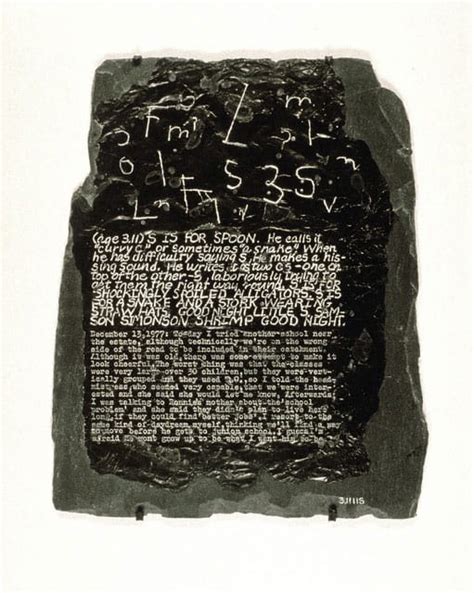 F m L m
o s l
o l F S 3 S n
L n v
(age 3.11) S IS FOR SPOON. He calls it
"curvy c" or sometimes "a snake." When
he has difficulty saying S, He makes a his-
sing sound. He writes it as two cs - one on
top of the other - S, laboriously trying to
get them the right way round. S IS FOR
SHOCKINGLY SPOILED ALLIGATORS. S IS
FOR A SNAKE AND A STORK WEARING
STRAW HATS. GOOD NIGHT LITTLE S. SIM-
SON SIMONSON SHRIMP GOOD NIGHT.
December 13, 1977: Today I tried another school near
the estate, although technically we're on the wrong
side of the road to be included in their catchment.
Although it was old, there was some attempt to make it
look cheerful. The worst thing was that the classes
were very large - over 30 children, but they were ver-
tically grouped and they used so I told the head-
mistress, who seemed very capable, that we were inter-
ested and she said she would let me know. Afterwards
I was talking to Ronnie's mother about the 'school
problem' and she said they didn't plan to live here
long if they could find better jobs. I resort to the
same kind of daydream myself, thinking we'll find a way
to move before he gets to junior school. I guess I'm
afraid he wont grow up to be what I want him to be.
3.1111S